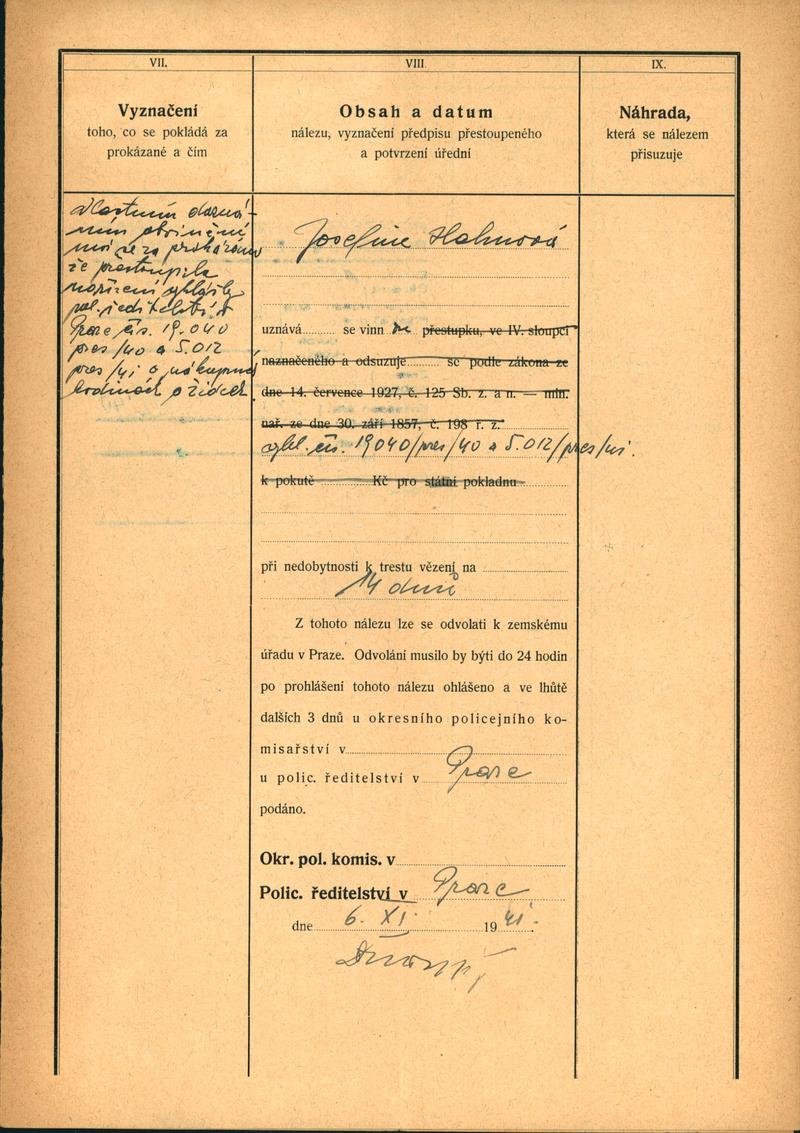 VII.
Vyznačení
toho, co se pokládá za
prokázané a čím
Vlastním dozná-
ním obviněné
má se za prokázáno
že přestoupila
nařízení vyhlášky
pol. ředitelství v
Praze čís. 19.040
pres/40 a 5.012
pres/41 o nákupních
hodinách o židech
VIII.
Obsah a datum
nálezu, vyznačení předpisu přestoupeného
a potvrzení úřední
Josefine Hahnová
uznává se vinn přestupku, ve IV. sloupci
naznačeného a odsuzuje se podle zákona ze
dne 14. července 1927, č. 125 Sb. z. a n. — min.
nař. ze dne 30. září 1857, č. 198 ř. z.
vyhl. čís. 19040/pres/40 a 5.012/pres/41.
k pokutě Kč pro státní pokladnu
při nedobytnosti k trestu vězení na
14 dnů
Z tohoto nálezu lze se odvolati k zemskému
úřadu v Praze. Odvolání musilo by býti do 24 hodin
po prohlášení tohoto nálezu ohlášeno a ve lhůtě
dalších 3 dnů u okresního policejního ko-
misařství v
u polic. ředitelství v Praze
podáno.
Okr. pol. komis. v
Polic. ředitelství v Praze
dne 6. XI. 1941.
IX.
Náhrada,
která se nálezem
přisuzuje